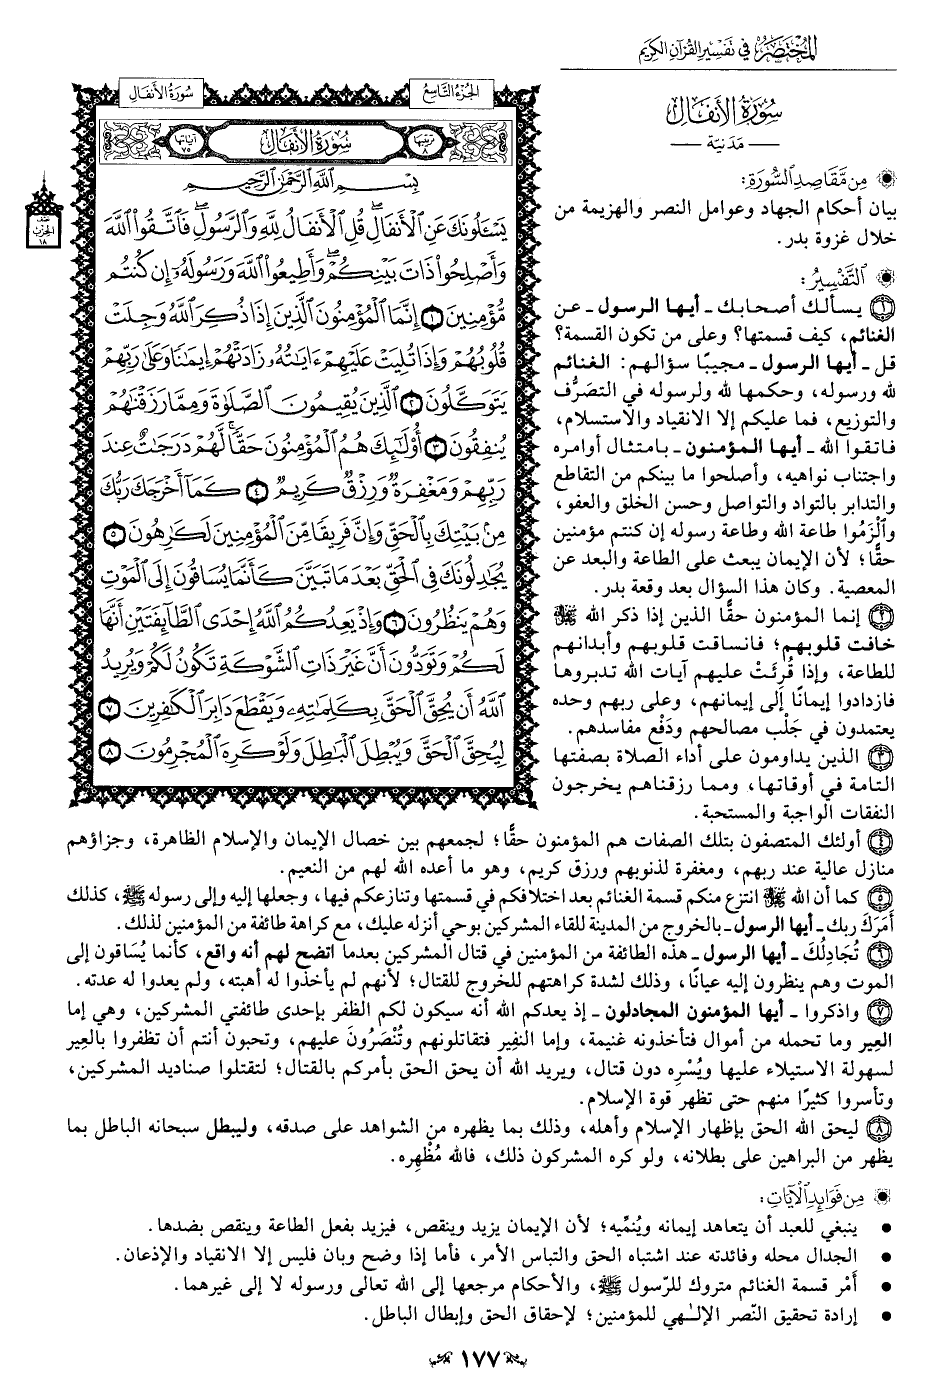 المختصر في تفسير القرآن الكريم
سورة الأنفال
— مدنية —
من مقاصد السورة:
بيان أحكام الجهاد وعوامل النصر والهزيمة من
خلال غزوة بدر.
التفسير:
١ يسألك أصحابك - أيها الرسول - عن
الغنائم، كيف قسمتها؟ وعلى من تكون القسمة؟
قل - أيها الرسول - مجيبًا سؤالهم: الغنائم
لله ورسوله، وحكمها لله ولرسوله في التصَرُّف
والتوزيع، فما عليكم إلا الانقياد والاستسلام،
فاتقوا الله - أيها المؤمنون - بامتثال أوامره
واجتناب نواهيه، وأصلحوا ما بينكم من التقاطع
والتدابر بالتواد والتواصل وحسن الخلق والعفو،
والْزَمُوا طاعة الله وطاعة رسوله إن كنتم مؤمنين
حقًّا؛ لأن الإيمان يبعث على الطاعة والبعد عن
المعصية. وكان هذا السؤال بعد وقعة بدر.
٢ إنما المؤمنون حقًّا الذين إذا ذكر الله ﷻ
خافت قلوبهم؛ فانساقت قلوبهم وأبدانهم
للطاعة، وإذا قُرِئَتْ عليهم آيات الله تدبروها
فازدادوا إيمانًا إلى إيمانهم، وعلى ربهم وحده
يعتمدون في جَلْب مصالحهم ودَفْع مفاسدهم.
٣ الذين يداومون على أداء الصلاة بصفتها
التامة في أوقاتها، ومما رزقناهم يخرجون
النفقات الواجبة والمستحبة.
الجزء التاسع
سورة الأنفال
ترتيبها ٨
سُورَةُ الأَنفَالِ
آياتها ٧٥
بِسْمِ اللَّهِ الرَّحْمَٰنِ الرَّحِيمِ
يَسْـَٔلُونَكَ عَنِ ٱلْأَنفَالِ ۖ قُلِ ٱلْأَنفَالُ لِلَّهِ وَٱلرَّسُولِ ۖ فَٱتَّقُوا۟ ٱللَّهَ
وَأَصْلِحُوا۟ ذَاتَ بَيْنِكُمْ ۖ وَأَطِيعُوا۟ ٱللَّهَ وَرَسُولَهُۥٓ إِن كُنتُم
مُّؤْمِنِينَ ١ إِنَّمَا ٱلْمُؤْمِنُونَ ٱلَّذِينَ إِذَا ذُكِرَ ٱللَّهُ وَجِلَتْ
قُلُوبُهُمْ وَإِذَا تُلِيَتْ عَلَيْهِمْ ءَايَٰتُهُۥ زَادَتْهُمْ إِيمَٰنًا وَعَلَىٰ رَبِّهِمْ
يَتَوَكَّلُونَ ٢ ٱلَّذِينَ يُقِيمُونَ ٱلصَّلَوٰةَ وَمِمَّا رَزَقْنَٰهُمْ
يُنفِقُونَ ٣ أُو۟لَٰٓئِكَ هُمُ ٱلْمُؤْمِنُونَ حَقًّا ۚ لَّهُمْ دَرَجَٰتٌ عِندَ
رَبِّهِمْ وَمَغْفِرَةٌ وَرِزْقٌ كَرِيمٌ ٤ كَمَآ أَخْرَجَكَ رَبُّكَ
مِنۢ بَيْتِكَ بِٱلْحَقِّ وَإِنَّ فَرِيقًا مِّنَ ٱلْمُؤْمِنِينَ لَكَٰرِهُونَ ٥
يُجَٰدِلُونَكَ فِى ٱلْحَقِّ بَعْدَ مَا تَبَيَّنَ كَأَنَّمَا يُسَاقُونَ إِلَى ٱلْمَوْتِ
وَهُمْ يَنظُرُونَ ٦ وَإِذْ يَعِدُكُمُ ٱللَّهُ إِحْدَى ٱلطَّآئِفَتَيْنِ أَنَّهَا
لَكُمْ وَتَوَدُّونَ أَنَّ غَيْرَ ذَاتِ ٱلشَّوْكَةِ تَكُونُ لَكُمْ وَيُرِيدُ
ٱللَّهُ أَن يُحِقَّ ٱلْحَقَّ بِكَلِمَٰتِهِۦ وَيَقْطَعَ دَابِرَ ٱلْكَٰفِرِينَ ٧
لِيُحِقَّ ٱلْحَقَّ وَيُبْطِلَ ٱلْبَٰطِلَ وَلَوْ كَرِهَ ٱلْمُجْرِمُونَ ٨
نصف
الحزب
١٨
٤ أولئك المتصفون بتلك الصفات هم المؤمنون حقًّا؛ لجمعهم بين خصال الإيمان والإسلام الظاهرة، وجزاؤهم
منازل عالية عند ربهم، ومغفرة لذنوبهم ورزق كريم، وهو ما أعده الله لهم من النعيم.
٥ كما أن الله ﷻ انتزع منكم قسمة الغنائم بعد اختلافكم في قسمتها وتنازعكم فيها، وجعلها إليه وإلى رسوله ﷺ، كذلك
أَمَرَكَ ربك - أيها الرسول - بالخروج من المدينة للقاء المشركين بوحي أنزله عليك، مع كراهة طائفة من المؤمنين لذلك.
٦ تُجَادِلُكَ - أيها الرسول - هذه الطائفة من المؤمنين في قتال المشركين بعدما اتضح لهم أنه واقع، كأنما يُسَاقون إلى
الموت وهم ينظرون إليه عيانًا، وذلك لشدة كراهتهم للخروج للقتال؛ لأنهم لم يأخذوا له أهبته، ولم يعدوا له عدته.
٧ واذكروا - أيها المؤمنون المجادلون - إذ يعدكم الله أنه سيكون لكم الظفر بإحدى طائفتي المشركين، وهي إما
العِير وما تحمله من أموال فتأخذونه غنيمة، وإما النفِير فتقاتلونهم وتُنْصَرُون عليهم، وتحبون أنتم أن تظفروا بالعِير
لسهولة الاستيلاء عليها ويُسْرِه دون قتال، ويريد الله أن يحق الحق بأمركم بالقتال؛ لتقتلوا صناديد المشركين،
وتأسروا كثيرًا منهم حتى تظهر قوة الإسلام.
٨ ليحق الله الحق بإظهار الإسلام وأهله، وذلك بما يظهره من الشواهد على صدقه، وليبطل سبحانه الباطل بما
يظهر من البراهين على بطلانه، ولو كره المشركون ذلك، فالله مُظْهِره.
من فوائد الآيات:
• ينبغي للعبد أن يتعاهد إيمانه ويُنمِّيه؛ لأن الإيمان يزيد وينقص، فيزيد بفعل الطاعة وينقص بضدها.
• الجدال محله وفائدته عند اشتباه الحق والتباس الأمر، فأما إذا وضح وبان فليس إلا الانقياد والإذعان.
• أَمْر قسمة الغنائم متروك للرّسول ﷺ، والأحكام مرجعها إلى الله تعالى ورسوله لا إلى غيرهما.
• إرادة تحقيق النّصر الإلٰهي للمؤمنين؛ لإحقاق الحق وإبطال الباطل.
١٧٧